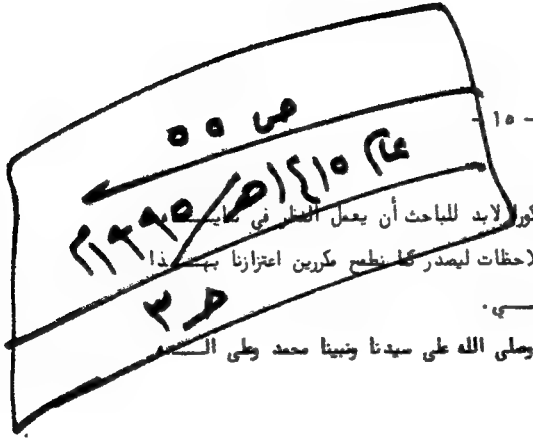 - ١٥ -
ص ٥٥
عام ١٤١٥هـ/١٩٩٥م
ط ٣
لابد للباحث أن يعمل النظر في
لاحظات ليصدر كما نطمح مكررين اعتزازنا بهـــذا
ـــي .
وصلى الله على سيدنا ونبينا محمد وعلى